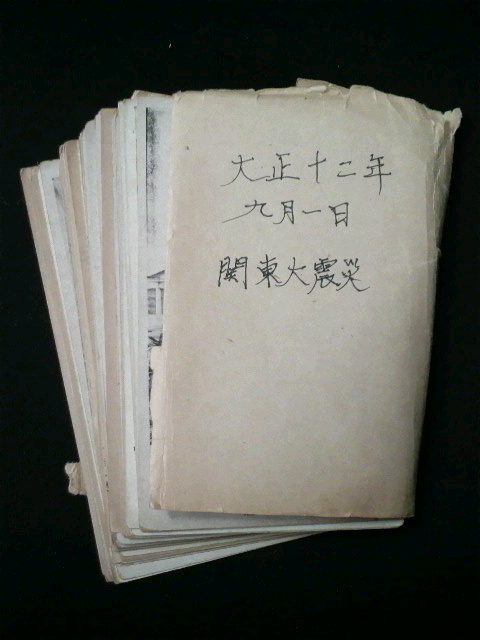 大正十二年
九月一日
関東大震災